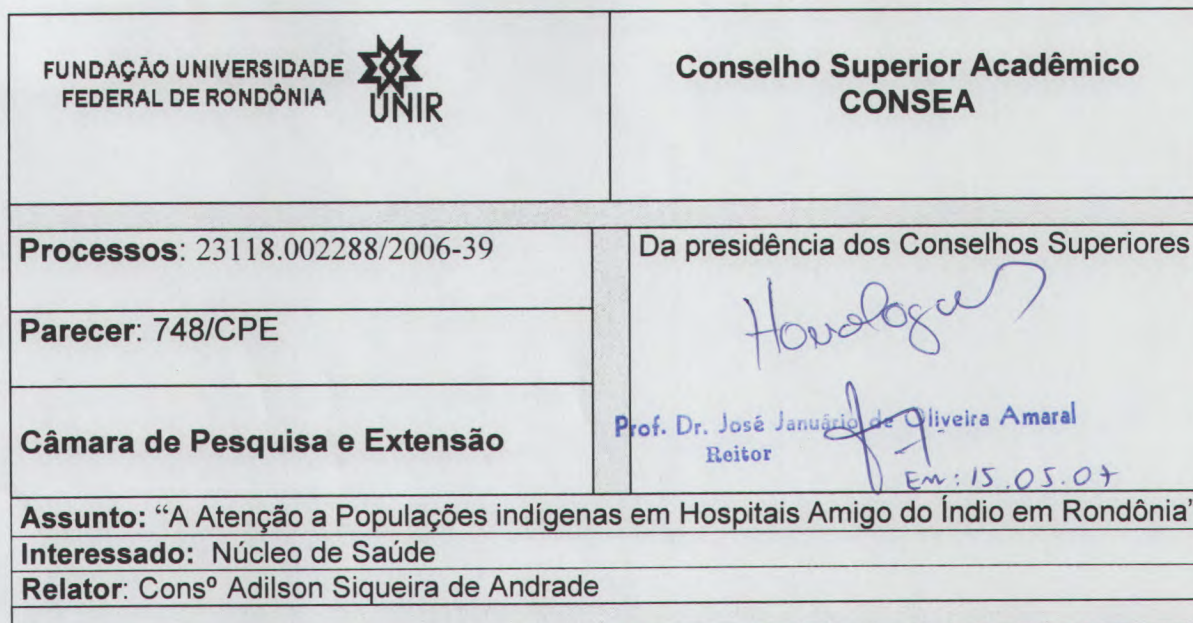 FUNDAÇÃO UNIVERSIDADE
FEDERAL DE RONDÔNIA
UNIR
Conselho Superior Acadêmico
CONSEA
Processos: 23118.002288/2006-39
Parecer: 748/CPE
Câmara de Pesquisa e Extensão
Da presidência dos Conselhos Superiores
Prof. Dr. José Januário de Oliveira Amaral
Reitor
Em: 15.05.07
Assunto: “A Atenção a Populações indígenas em Hospitais Amigo do Índio em Rondônia”
Interessado: Núcleo de Saúde
Relator: Consº Adilson Siqueira de Andrade